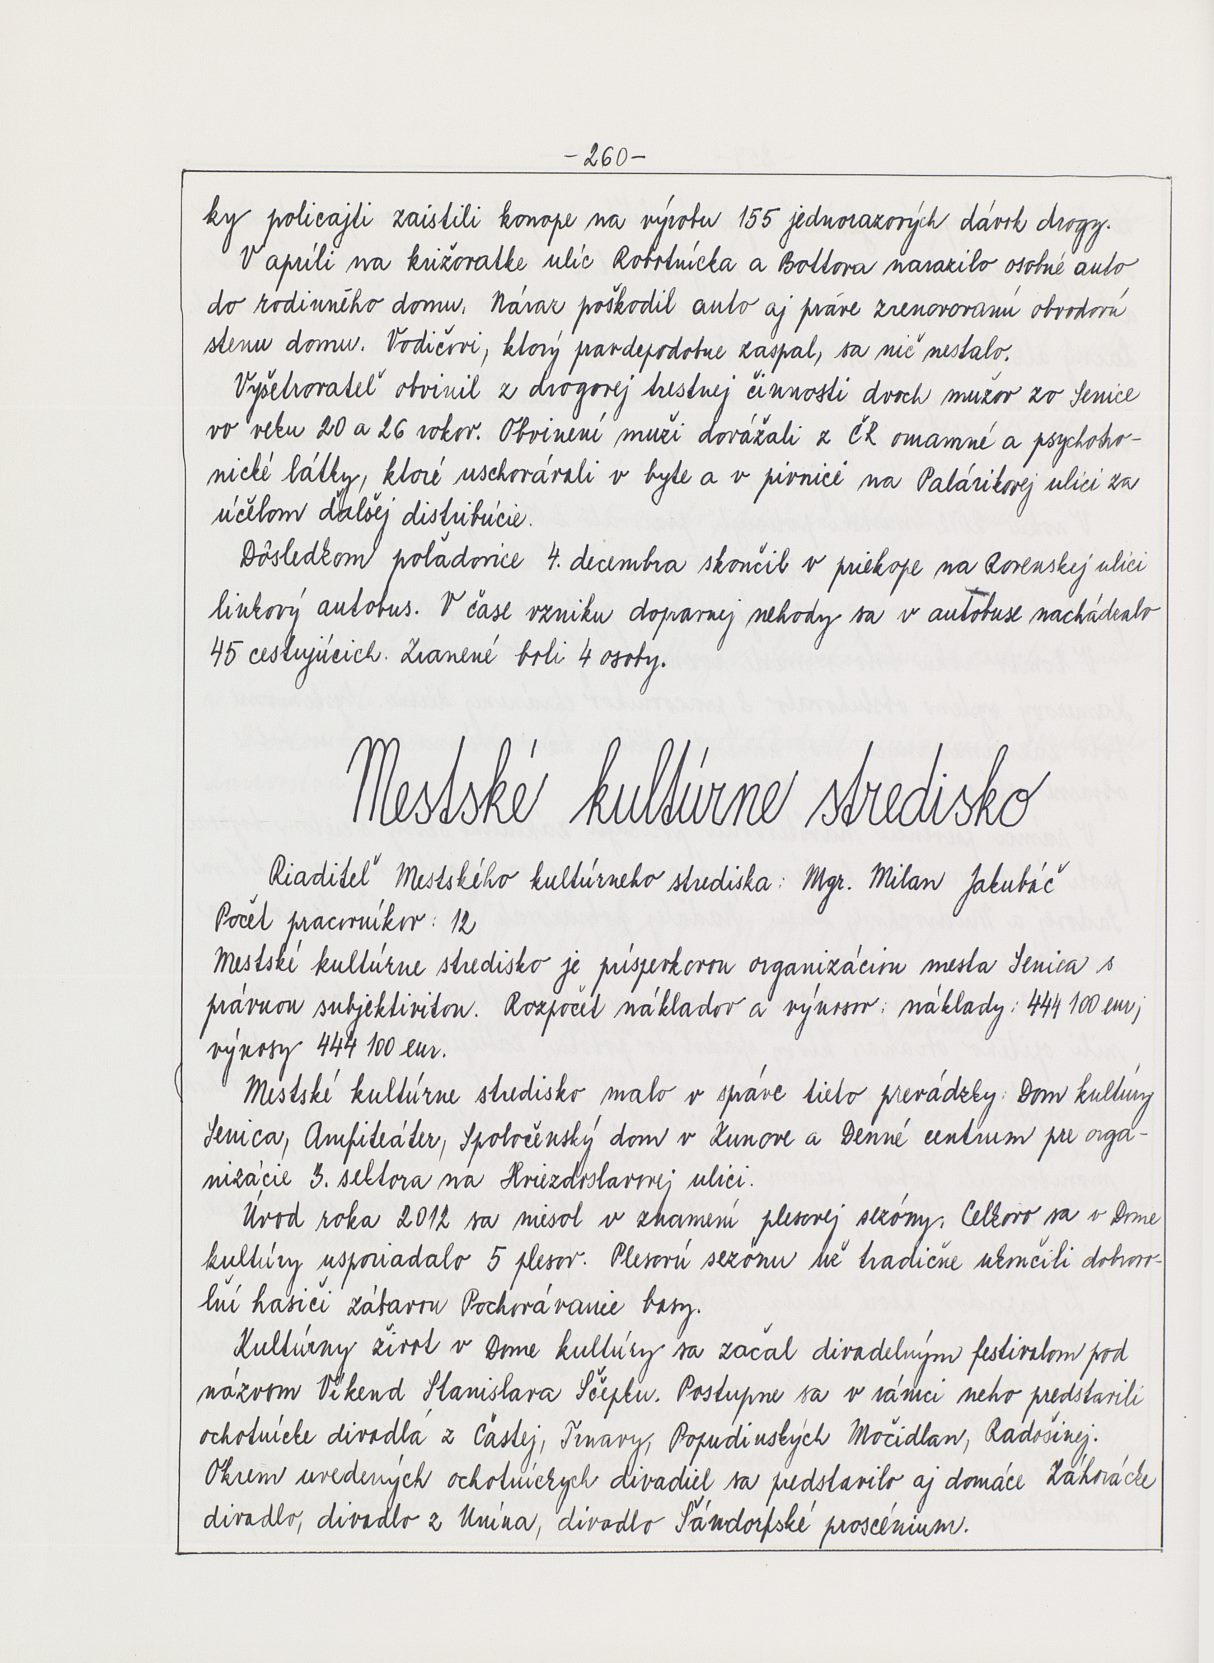 -260-
ky policajti zaistili konope na výrobu 155 jednorazových dávok drogy.
V apríli na križovatke ulíc Robotnícka a Bottova narazilo osobné auto
do rodinného domu. Náraz poškodil auto aj práve zrenovovanú obvodovú
stenu domu. Vodičovi, ktorý pravdepodobne zaspal, sa nič nestalo.
Vyšetrovateľ obvinil z drogovej trestnej činnosti dvoch mužov zo Senice
vo veku 20 a 26 rokov. Obvinení muži dovážali z ČR omamné a psychotro-
nické látky, ktoré uschovávali v byte a v pivnici na Palárikovej ulici za
účelom ďalšej distribúcie.
Dôsledkom poľadovice 4. decembra skončil v priekope na Rovenskej ulici
linkový autobus. V čase vzniku dopravnej nehody sa v autobuse nachádzalo
45 cestujúcich. Zranené boli 4 osoby.
Mestské kultúrne stredisko
Riaditeľ Mestského kultúrneho strediska: Mgr. Milan Jakubáč
Počet pracovníkov: 12
Mestské kultúrne stredisko je príspevkovou organizáciou mesta Senica s
právnou subjektivitou. Rozpočet nákladov a výnosov: náklady: 444 100 eur;
výnosy 444 100 eur.
Mestské kultúrne stredisko malo v správe tieto prevádzky: Dom kultúry
Senica, Amfiteáter, Spoločenský dom v Kunove a Denné centrum pre orga-
nizácie 3. sektora na Hviezdoslavovej ulici.
Úvod roka 2012 sa niesol v znamení plesovej sezóny. Celkovo sa v Dome
kultúry usporiadalo 5 plesov. Plesovú sezónu už tradične ukončili dobrovo-
ľní hasiči zábavou Pochovávanie basy.
Kultúrny život v Dome kultúry sa začal divadelným festivalom pod
názvom Víkend Stanislava Ščepku. Postupne sa v rámci neho predstavili
ochotnícke divadlá z Častej, Trnavy, Popudinských Močidlan, Radošinej.
Okrem uvedených ochotníckych divadiel sa predstavilo aj domáce Záhorácke
divadlo, divadlo z Unína, divadlo Šándorfské proscénium.